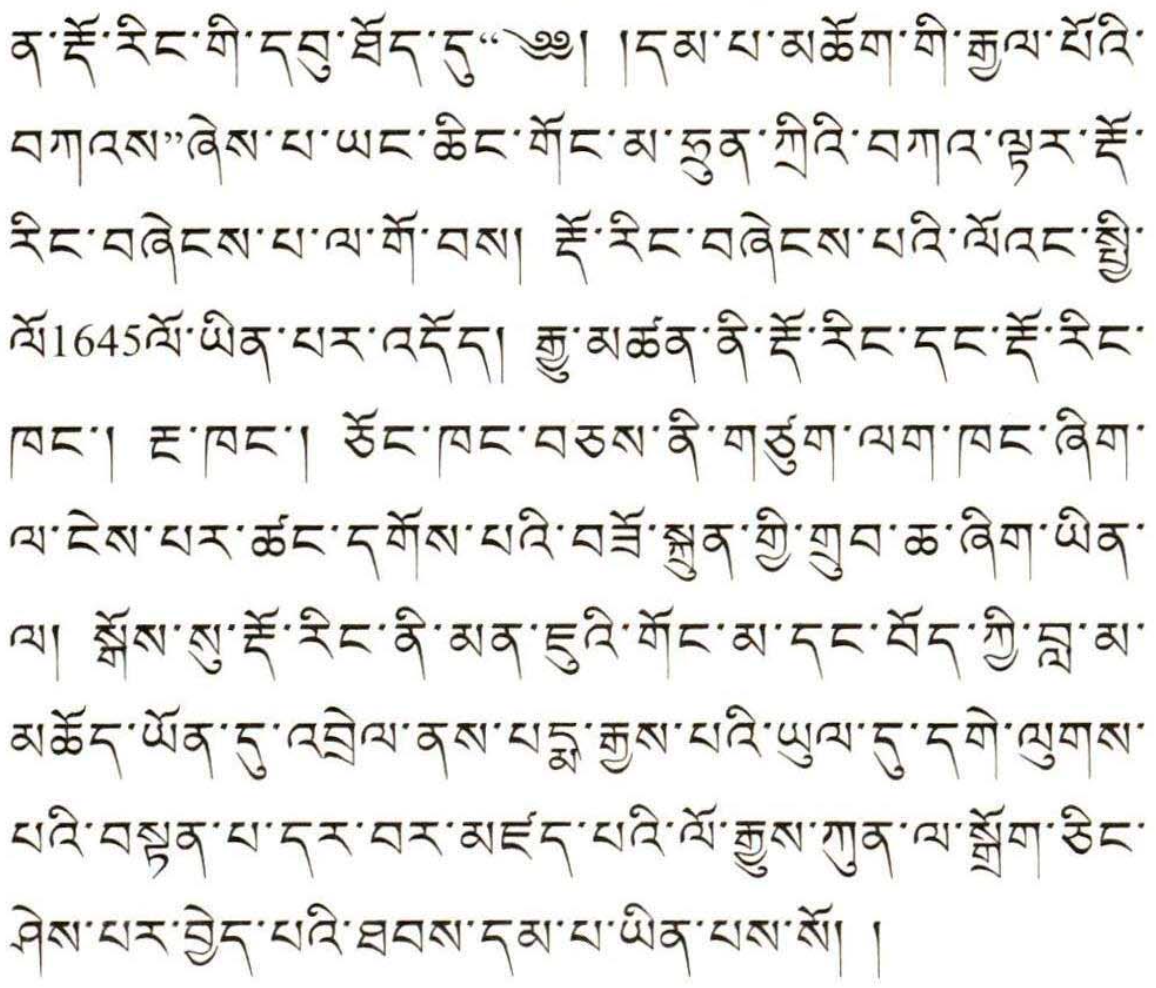 ན་རྡོ་རིང་གི་དབུ་ཐོད་དུ“༄༅། །དམ་པ་མཆོག་གི་རྒྱལ་པོའི་
བཀའས”ཞེས་པ་ཡང་ཆིང་གོང་མ་ཧྲུན་ཀྲིའི་བཀའ་ལྟར་རྡོ་
རིང་བཞེངས་པ་ལ་གོ་བས། རྡོ་རིང་བཞེངས་པའི་ལོའང་སྤྱི་
ལོ1645ལོ་ཡིན་པར་འདོད། རྒྱུ་མཚན་ནི་རྡོ་རིང་དང་རྡོ་རིང་
ཁང་། རྔ་ཁང་། ཅོང་ཁང་བཅས་ནི་གཙུག་ལག་ཁང་ཞིག་
ལ་ངེས་པར་ཚང་དགོས་པའི་བཟོ་སྐྲུན་གྱི་གྲུབ་ཆ་ཞིག་ཡིན་
ལ། སྒོས་སུ་རྡོ་རིང་ནི་མན་ཇུའི་གོང་མ་དང་བོད་ཀྱི་བླ་མ་
མཆོད་ཡོན་དུ་འབྲེལ་ནས་པདྨ་རྒྱས་པའི་ཡུལ་དུ་དགེ་ལུགས་
པའི་བསྟན་པ་དར་བར་མཛད་པའི་ལོ་རྒྱུས་ཀུན་ལ་སྒྲོག་ཅིང་
ཤེས་པར་བྱེད་པའི་ཐབས་དམ་པ་ཡིན་པས་སོ། །